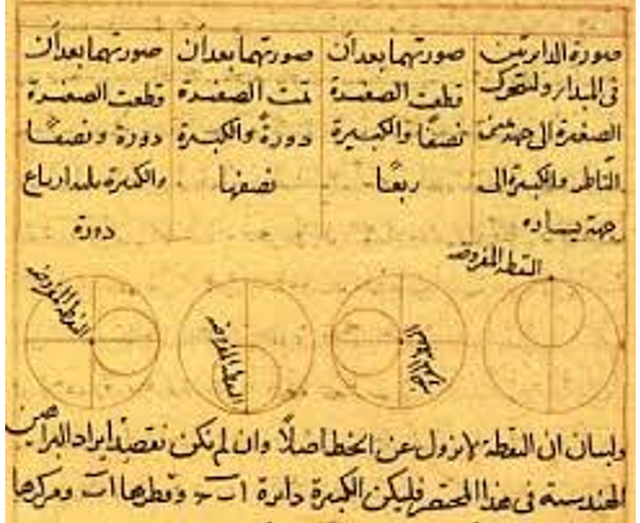 صورة الدايرتين
في المبدا ولتتحرك
الصغيرة الى جهة يمين
الناظر والكبيرة الى
جهة يساره
صورتهما بعد أن
قطعت الصغيرة
نصفًا والكبيرة
ربعًا
صورتهما بعد أن
تمت الصغيرة
دورةً والكبيرة
نصفها
صورتهما بعد أن
قطعت الصغيرة
دورة ونصفًا
والكبيرة ثلثة ارباع
دورة
النقطة المفروضة
النقطة المفروضة
النقطة المفروضة
ولبيان ان النقطة لا تزول عن الخط اصلًا وان لم نكن نقصد ايراد البراهين
الهندسية في هذا المختصر فليكن الكبيرة دايرة ا ب ج وقطرها ا ب ومركزها